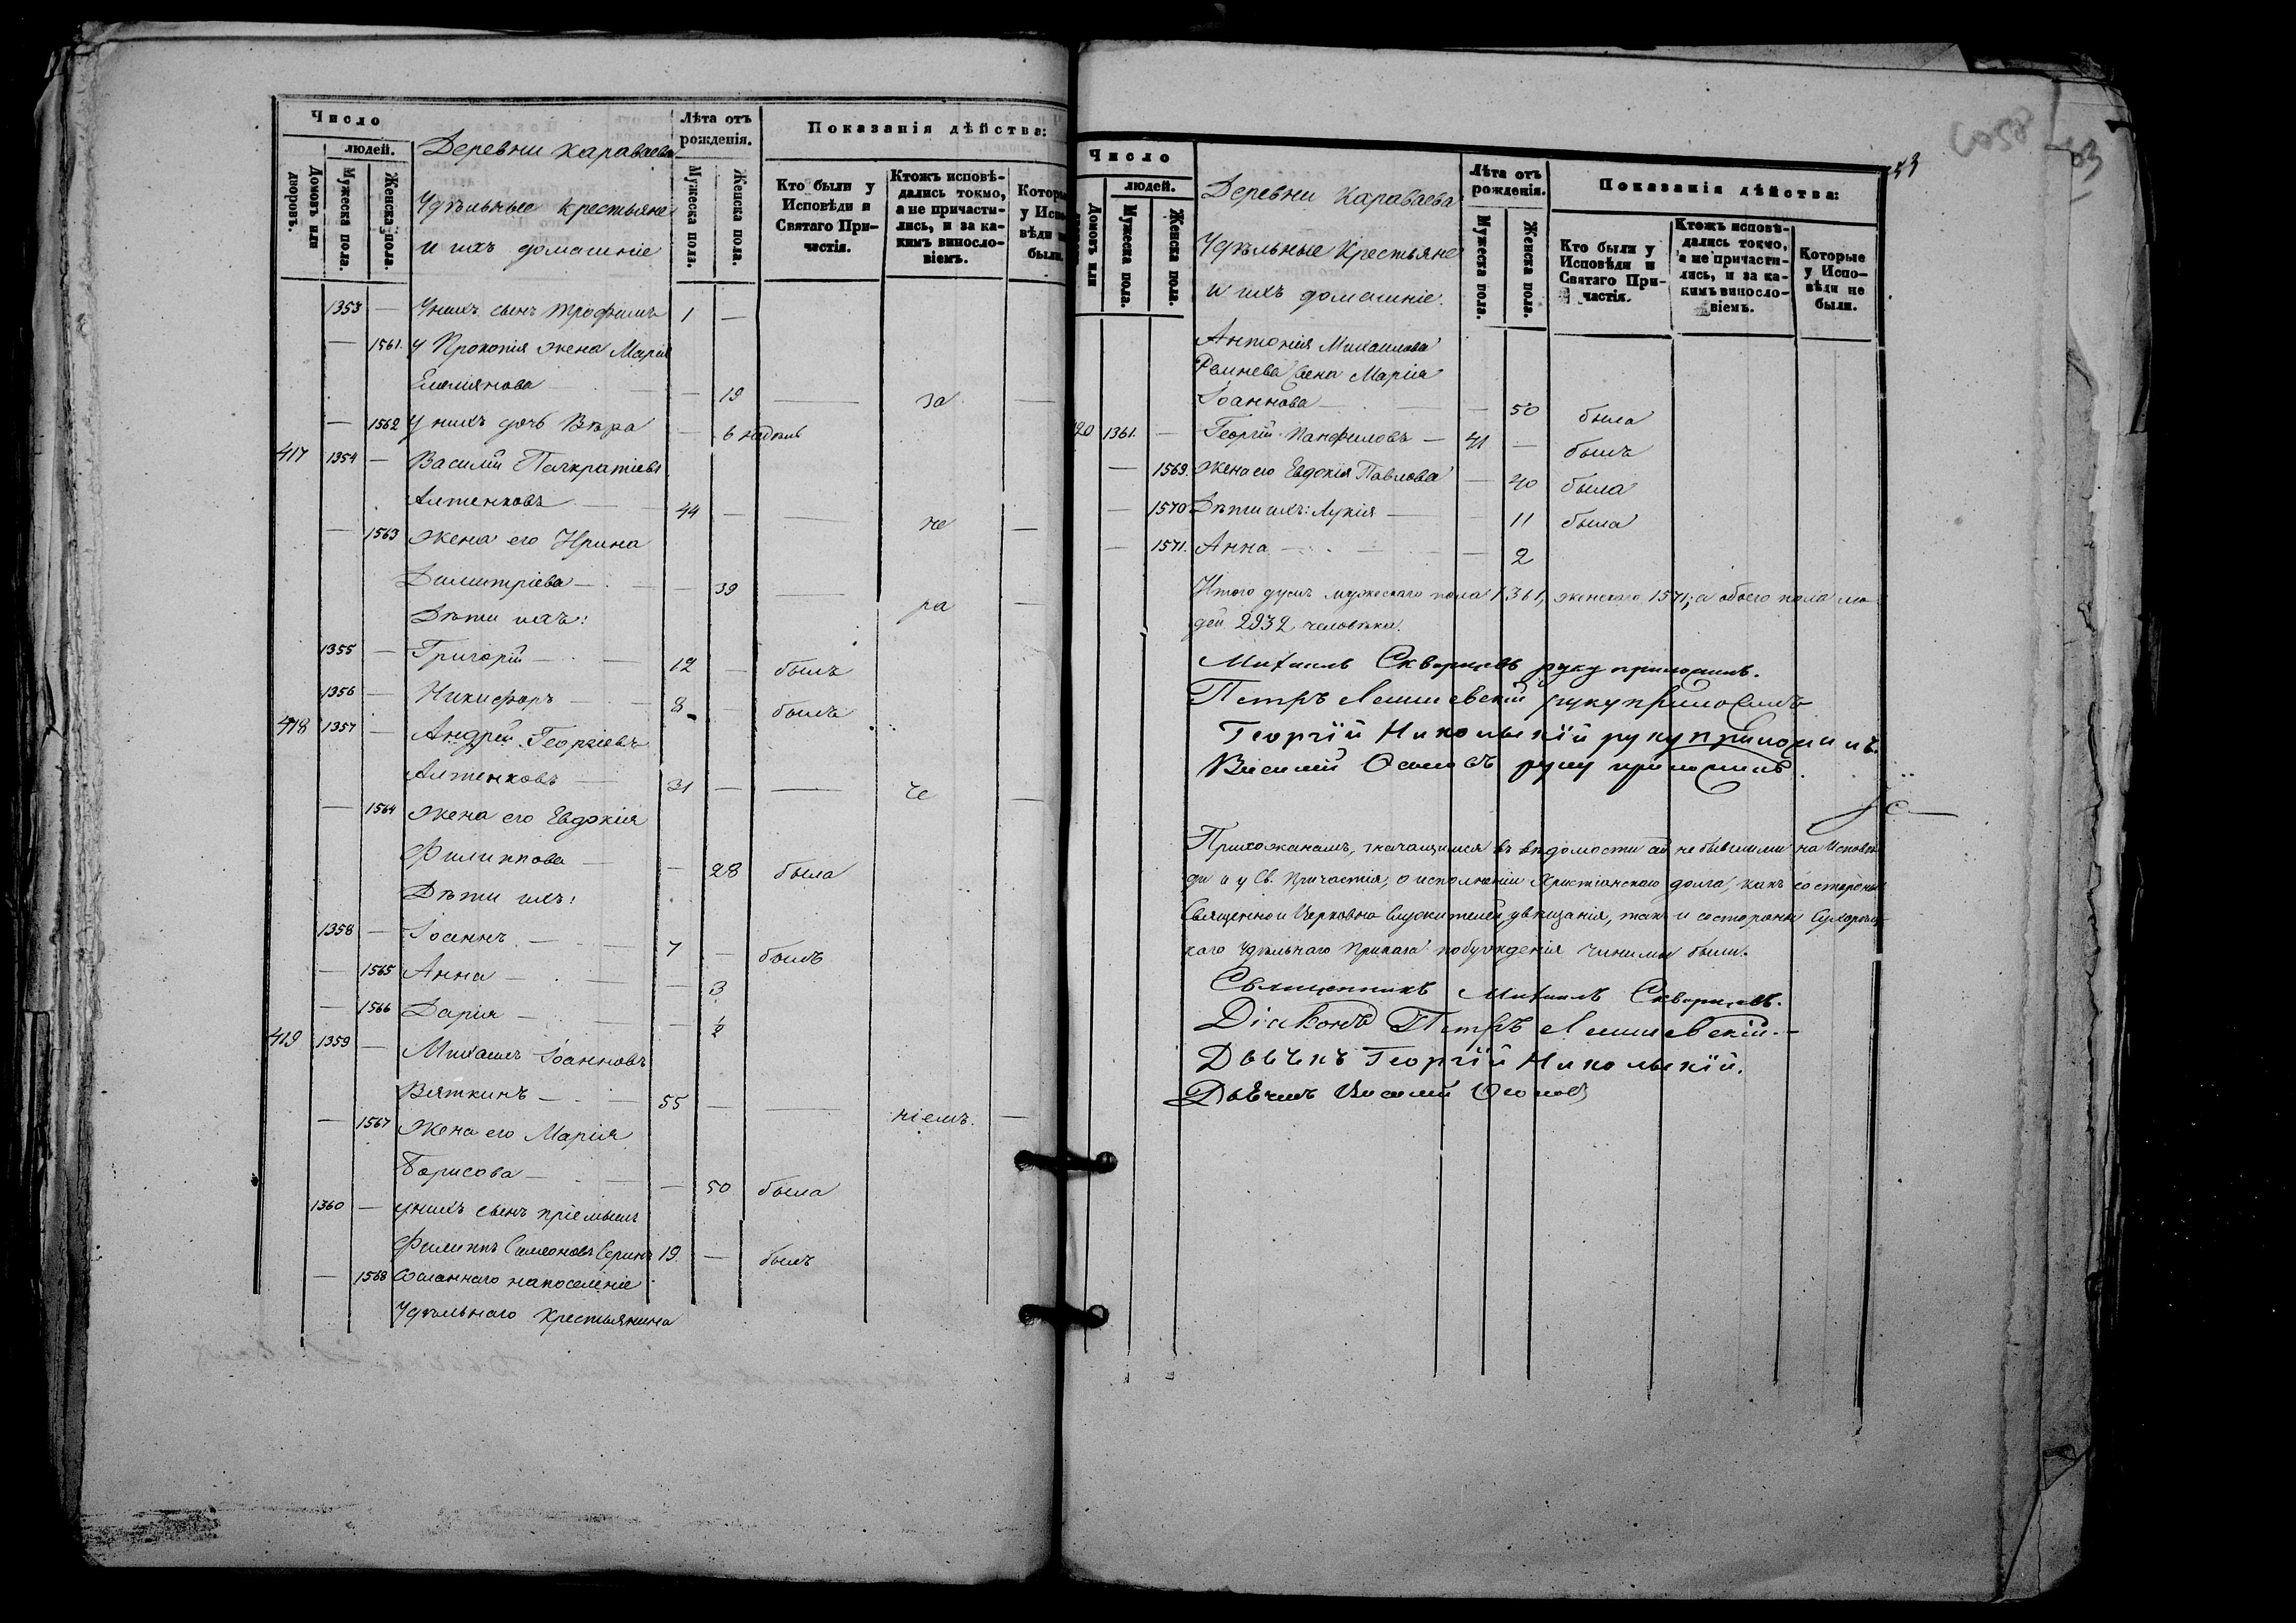 Число
людей.
Домовъ или дворовъ.
Мужеска пола.
Женска пола.
Деревни Караваева
Удѣльные крестьяне
и ихъ домашніе
Лѣта отъ рожденія.
Мужеска пола.
Женска пола.
Показанія дѣйства:
Кто были у Исповѣди и Святаго Причастія.
Ктожъ исповѣдались токмо, а не причастились, и за какимъ винословіемъ.
Которы у Испо вѣди не были.
1353 — У нихъ сынъ Трофимъ 1 —
— 1561. У Прокопія жена Марія
Емелiянова — 19 — за —
— 1562 У нихъ дочь Вѣра — 6 недѣль
417 1354 — Василій Панкратіевъ
Антенковъ 44 — — не —
— 1563 жена его Ирина
Димитріева — 39 — ра —
Дѣти ихъ:
1355 — Григорій 12 — былъ
1356 — Никифоръ 8 — былъ
418 1357 — Андрей Георгіевъ
Антенковъ 31 — — че —
— 1564 жена его Евдокія
Филиппова — 28 была
Дѣти ихъ:
1358 — Іоаннъ 7 — былъ
— 1565 Анна — 3
— 1566 Дарія — ½
419 1359 — Михаилъ Іоанновъ
Вяткинъ 55 — — ніемъ. —
— 1567 Жена его Марія
Борисова — 50 была
1360 — У нихъ сынъ пріемышъ
Филиппъ Симеоновъ 19 — былъ
— 1568 Сосланнаго на поселеніе
Удѣльнаго Крестьянина
43
Число
людей.
Домовъ или
Мужеска пола.
Женска пола.
Деревни Караваева
Удѣльные Крестьяне
и ихъ домашніе.
Лѣта отъ рожденія.
Мужеска пола.
Женска пола.
Показанія дѣйства:
Кто были у Исповѣди и Святаго Причастія.
Ктожъ исповѣдались токмо, а не причастились, и за какимъ винословіемъ.
Которые у Исповѣди не были.
Антонія Михаилова
жена Марія
Іоаннова — 50 была
20 1361. — Георгій Панфиловъ — 41 — былъ
— 1569. Жена его Евдокія Павлова — 40 была
— 1570 Дѣти ихъ: Лукія — 11 была
— 1571. Анна — 2
Итого душъ мужескаго пола 1361, женскаго 1571; а обоего пола лю
дей 2932 человѣка.
Михаилъ Скворцовъ руку приложилъ.
Петръ руку приложилъ
Георгій Никольскій руку приложилъ.
Василій Осиповъ руку приложилъ.
Прихожанамъ, значащимся въ вѣдомости сей не бывшими на Исповѣ
ди и у Св. Причастія, о исполненіи Христіанскаго долга, какъ со стороны
Священно и Церковно Служителей увѣщанія, такъ и со стороны
каго Удѣльнаго Приказа побужденія чинимы были.
Священникъ Михаилъ Скворцовъ.
Діаконъ Петръ
Дьячекъ Георгій Никольскій.
Дьячекъ Василій Осиповъ